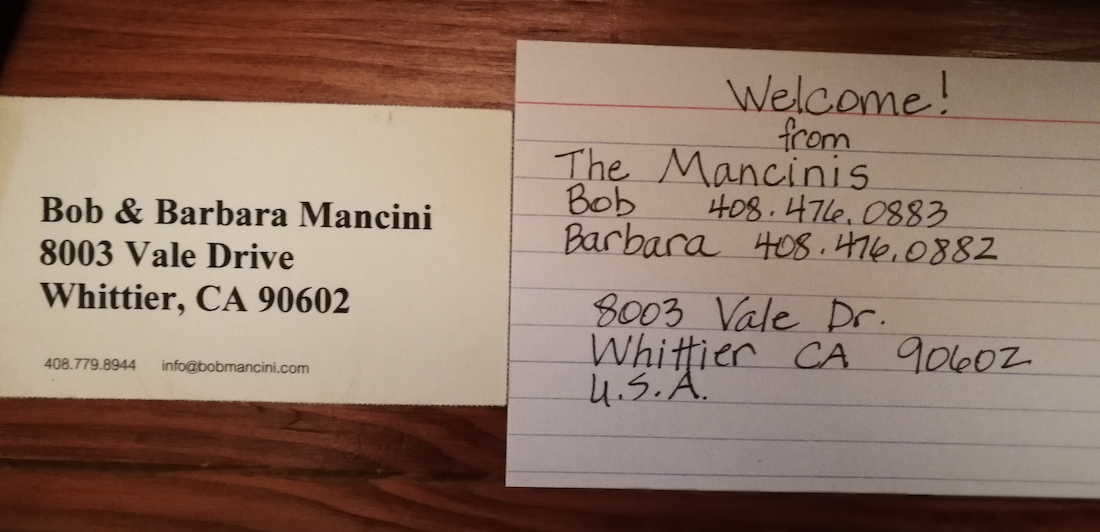 Bob & Barbara Mancini
8003 Vale Drive
Whittier, CA 90602
408.779.8944 info@bobmancini.com
Welcome!
from
The Mancinis
Bob 408.476.0883
Barbara 408.476.0882
8003 Vale Dr.
Whittier CA 90602
U.S.A.